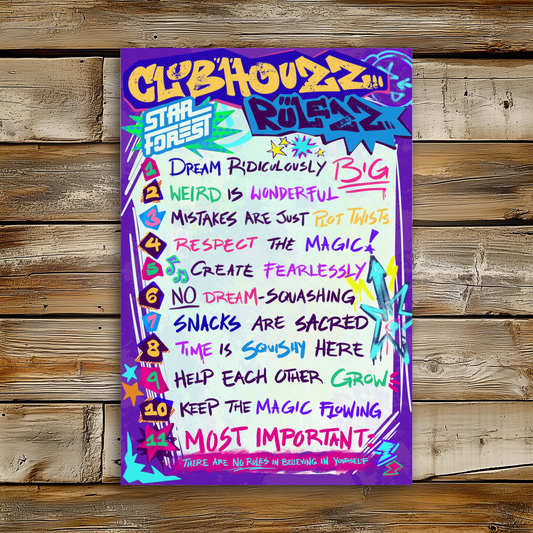 CLUBHOUZZ...
RÜLEZZ...
STAR
FOREST
1 DREAM RIDICULOUSLY BIG
2 WEIRD IS WONDERFUL
3 MISTAKES ARE JUST PLOT TWISTS
4 RESPECT THE MAGIC!
5 CREATE FEARLESSLY
6 NO DREAM-SQUASHING
7 SNACKS ARE SACRED
8 TIME IS SQUISHY HERE
9 HELP EACH OTHER GROW
10 KEEP THE MAGIC FLOWING
11 MOST IMPORTANT
THERE ARE NO RULES IN BELIEVING IN YOURSELF